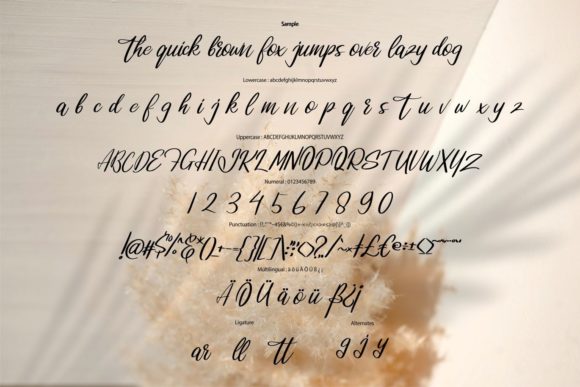 Sample
the quick brown fox jumps over lazy dog
Lowercase : abcdefghijklmnopqrstuvwxyz
a b c d e f g h i j k l m n o p q r s t u v w x y z
Uppercase : ABCDEFGHIJKLMNOPQRSTUVWXYZ
ABCDEFGHIJKLMNOPQRSTUVWXYZ
Numeral : 0123456789
1 2 3 4 5 6 7 8 9 0
Punctuation :
Multilingual : ä ö ü Ä Ö Ü ß ¿ ¡
ÄÖÜäöüß¿¡
Ligature Alternates
ar ll tt g j y